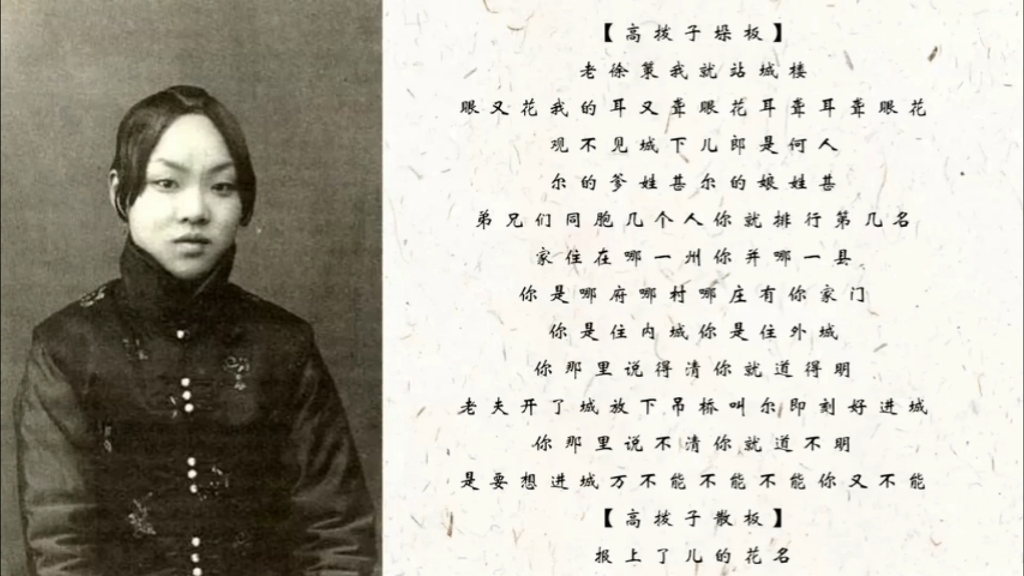 【高拨子垛板】
老徐策我就站城楼
眼又花我的耳又聋眼花耳聋耳聋眼花
观不见城下儿郎是何人
尔的爹姓甚尔的娘姓甚
弟兄们同胞几个人你就排行第几名
家住在哪一州你并哪一县
你是哪府哪村哪庄有你家门
你是住内城你是住外城
你那里说得清你就道得明
老夫开了城放下吊桥叫尔即刻好进城
你那里说不清你就道不明
是要想进城万不能不能不能你又不能
【高拨子散板】
报上了儿的花名